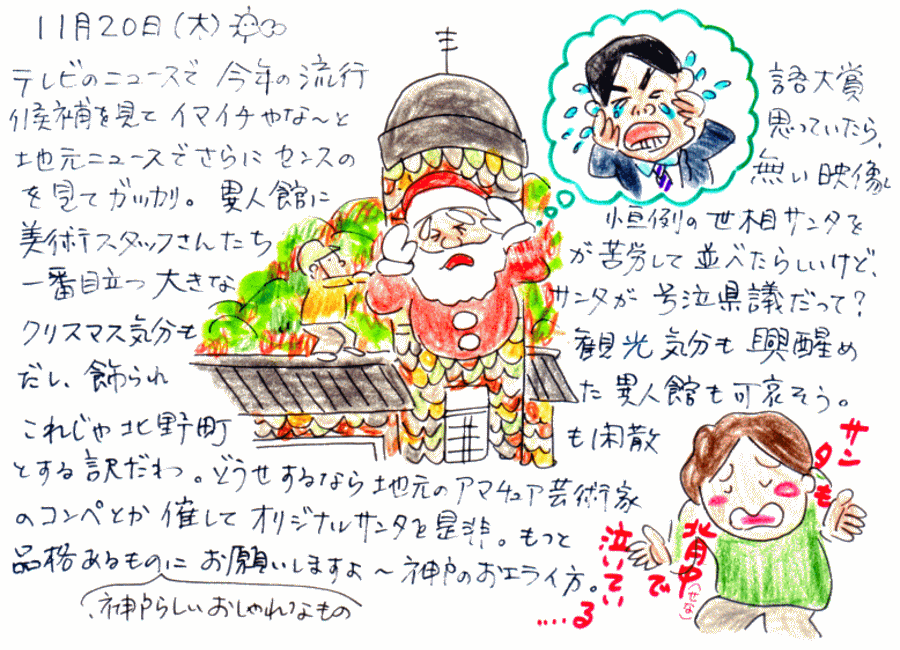 11月20日(木)
テレビのニュースで 今年の流行 語大賞
候補を見て イマイチやな～と 思っていたら、
地元ニュースでさらに センスの 無い映像
を見てガッカリ。異人館に 恒例の世相サンタを
美術スタッフさんたち が苦労して並べたらしいけど、
一番目立つ大きな サンタが号泣県議だって?
クリスマス気分も 観光気分も興醒め
だし、飾られ た異人館も可哀そう。
これじゃ北野町 も閑散
とする訳だわ。どうせするなら地元のアマチュア芸術家
のコンペとか催してオリジナルサンタを是非。もっと
品格あるものにお願いしますよ～神戸のおエライ方。
神戸らしいおしゃれなもの
サンタも
背中(せな)で
泣いてい
る....